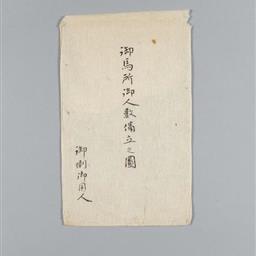 御馬所御人数備立之圖
御側御用人